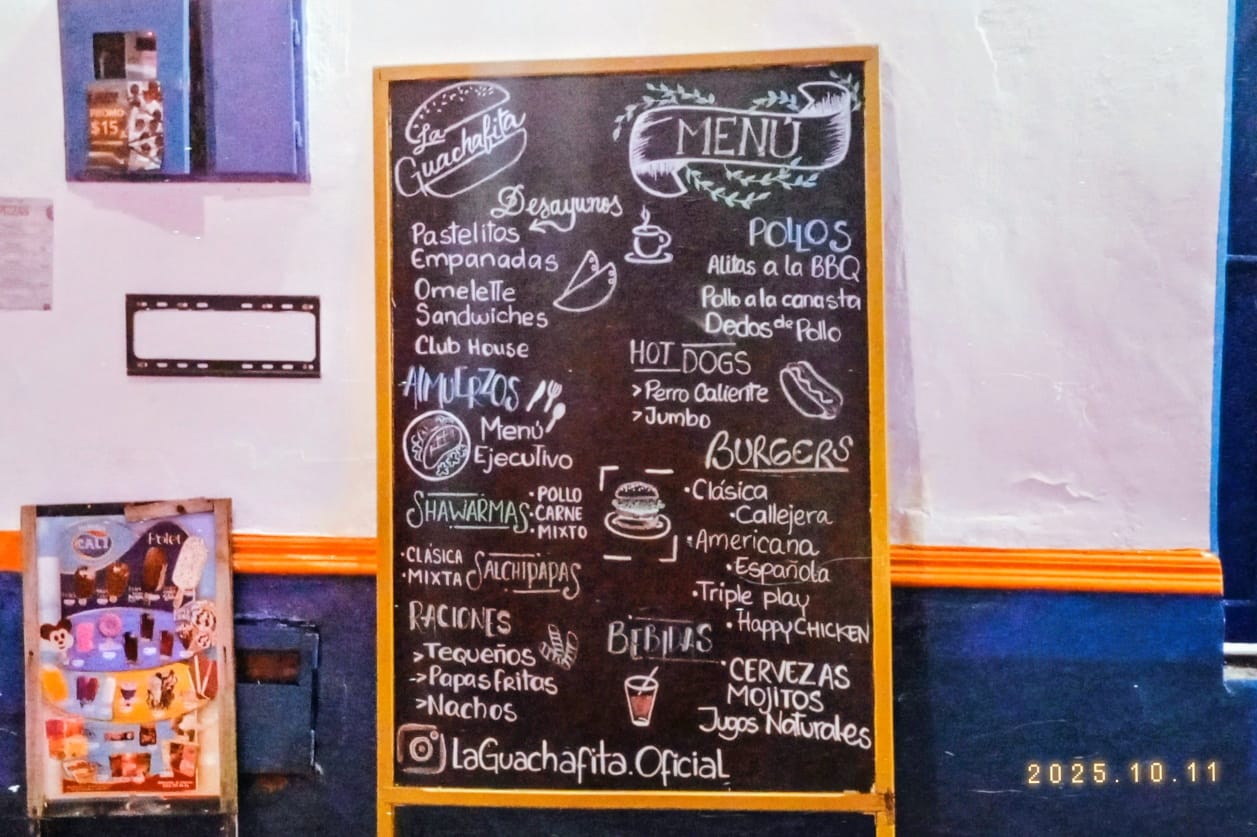 La
Guachafita
MENÚ
Desayunos
Pastelitos
Empanadas
Omelette
Sandwiches
Club House
AlMUERZOS
Menú
Ejecutivo
SHAWARMAS
• POLLO
• CARNE
• MIXTO
• CLÁSICA
• MIXTA
SALCHIPAPAS
RACIONES
> Tequeños
> Papas fritas
> Nachos
POLLOS
Alitas a la BBQ
Pollo a la canasta
Dedos de Pollo
HOT DOGS
> Perro Caliente
> Jumbo
BURGERS
• Clásica
• Callejera
• Americana
• Española
• Triple play
• Happy CHICKEN
BEBIDAS
• CERVEZAS
MOJITOS
Jugos Naturales
LaGuachafita.Oficial
PROMO
$15
CALI
Polet
2025.10.11